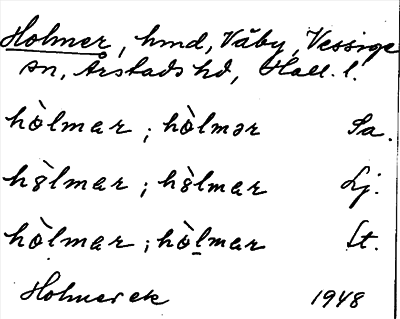 Holmer, hmd, Väby, Vessige
sn, Årstads hd, Hall. l.
hòlmar ; hòlmər Sa.
hòlmar ; hòlmar Lj.
hòlmar ; hòlmar St.
Holmer ek 1948